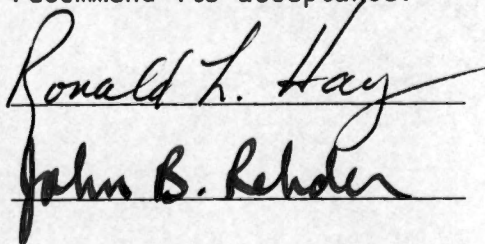 recommend its acceptance:
Ronald L. Hay
John B. Rehder